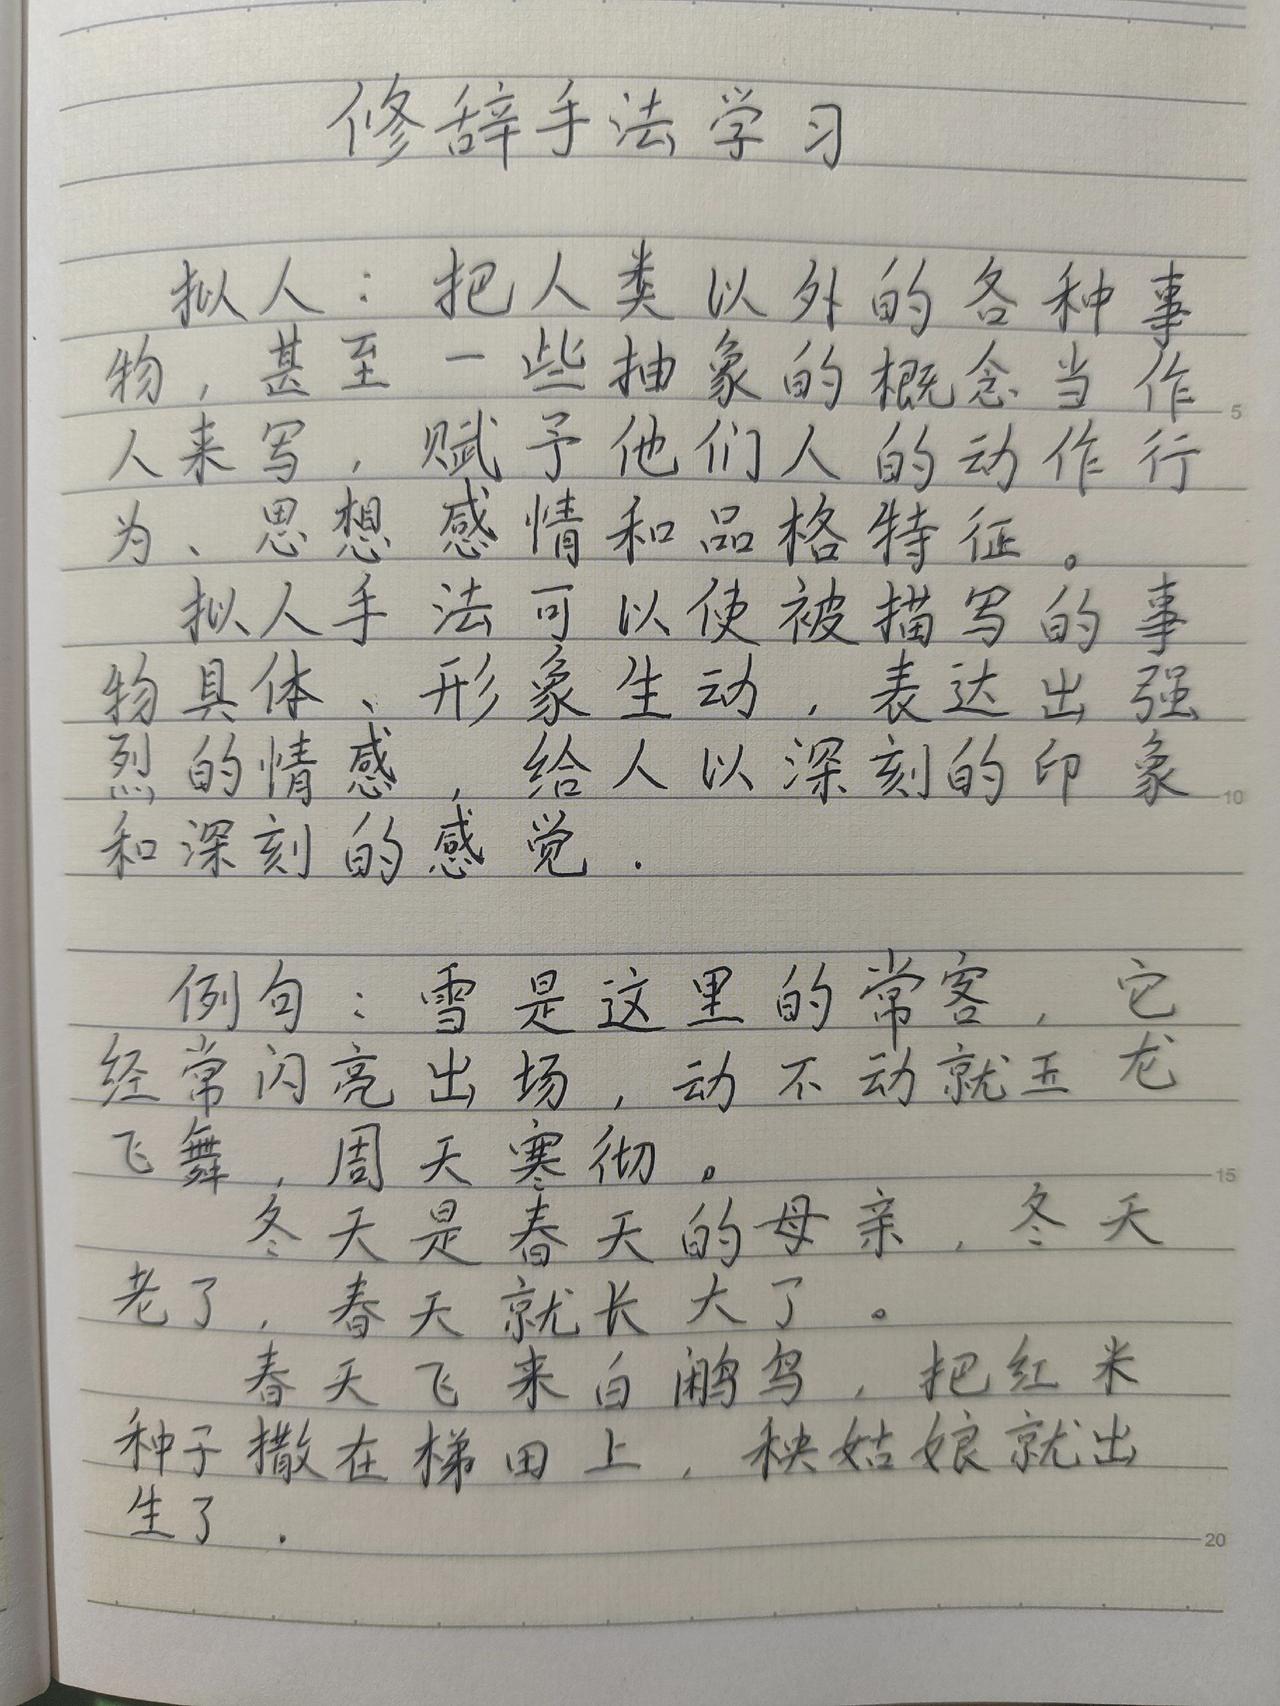 修辞手法学习
拟人：把人类以外的各种事
物，甚至一些抽象的概念当作
人来写，赋予他们人的动作行
为、思想感情和品格特征。
拟人手法可以使被描写的事
物具体、形象生动，表达出强
烈的情感，给人以深刻的印象
和深刻的感觉.
例句：雪是这里的常客，它
经常闪亮出场，动不动就玉龙
飞舞，周天寒彻。
冬天是春天的母亲，冬天
老了，春天就长大了。
春天飞来白鹇鸟，把红米
种子撒在梯田上，秧姑娘就出
生了.
5
10
15
20